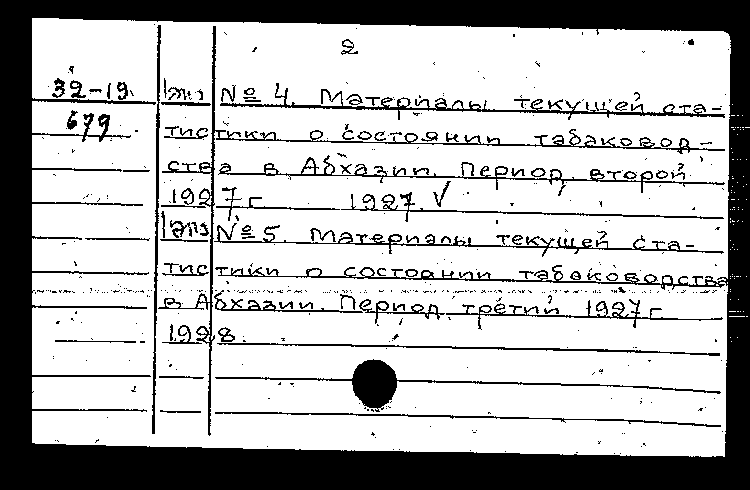 2
32-19. 1экз № 4. Материалы текущей ста-
679 тистики о состоянии табаковод-
ства в Абхазии. Период второй
1927 г 1927. √
1экз № 5. Материалы текущей ста-
тистики о состоянии табаководства
в Абхазии. Период третий 1927 г.
1928.